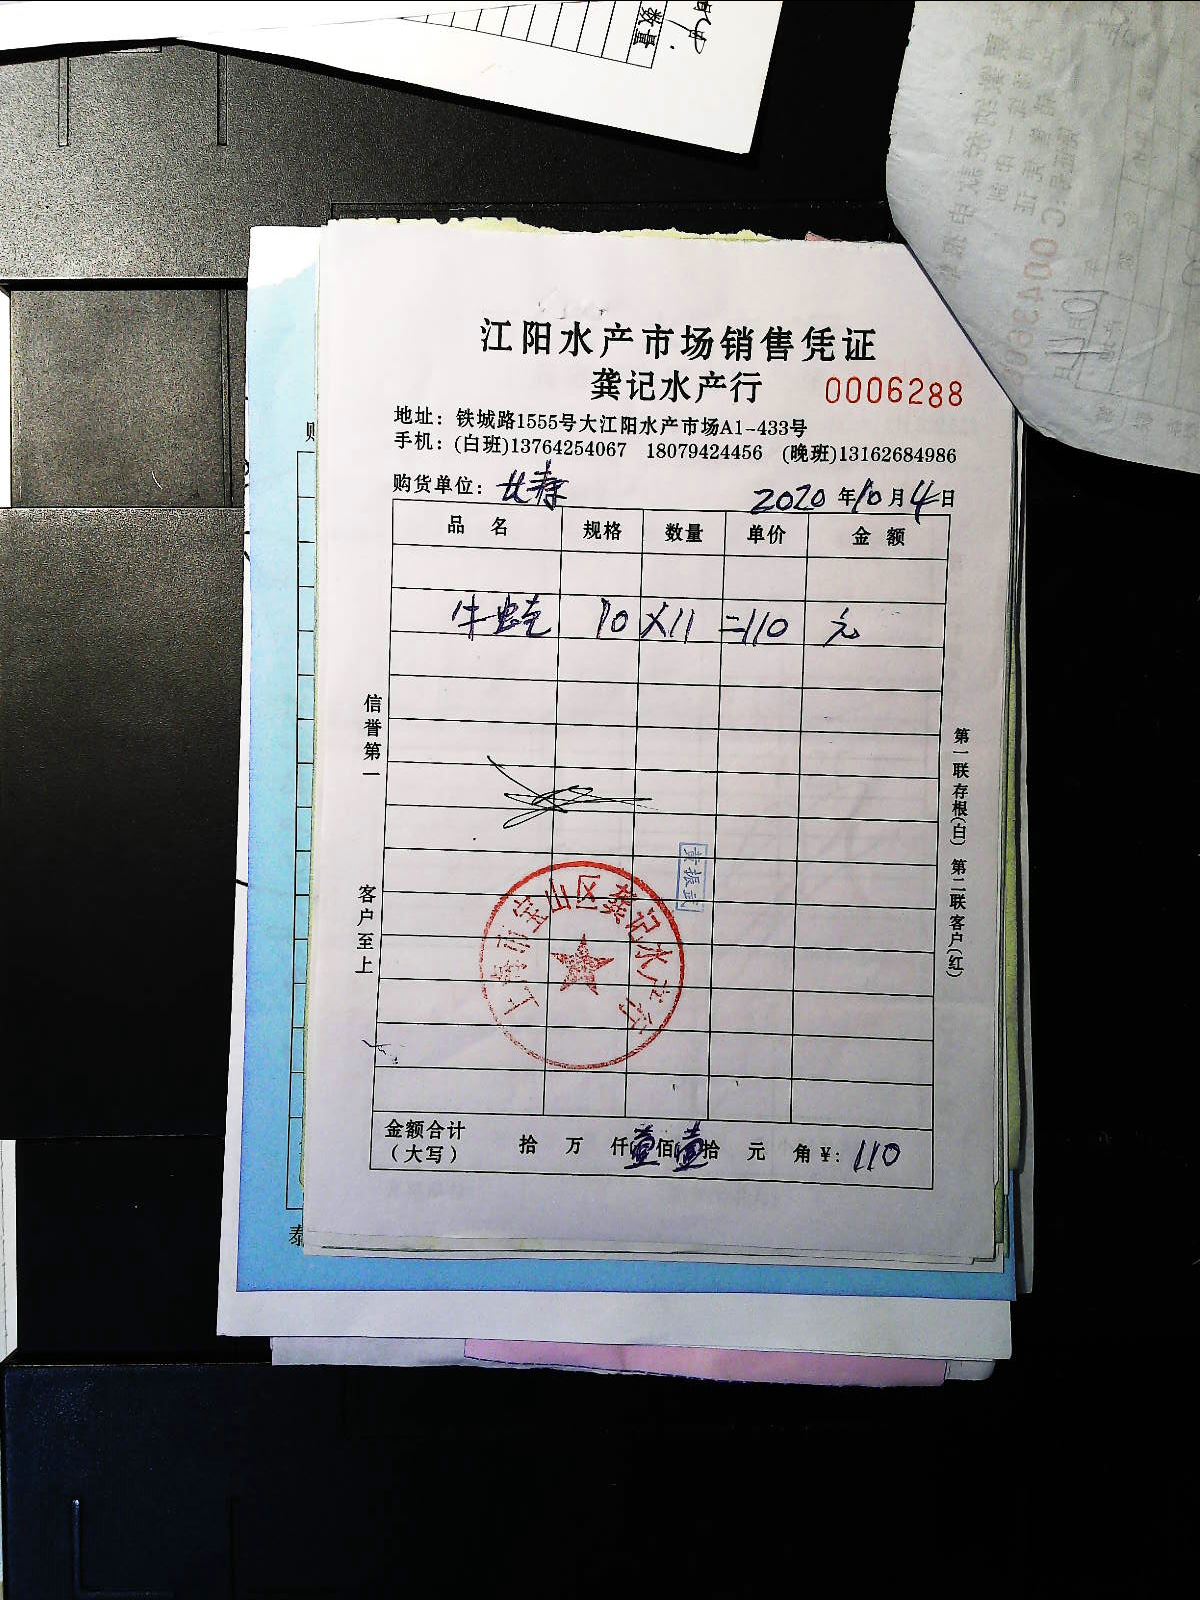 数量
江阳水产市场销售凭证
龚记水产行 0006288
地址：铁城路1555号大江阳水产市场A1-433号
手机：(白班)13764254067 18079424456 (晚班)13162684986
购货单位： 2020年10月4日
品名 规格 数量 单价 金额
牛蛙 10 X11 =110 元
信誉第一
客户至上
第一联存根(白) 第二联客户(红)
黄振武
上海市宝山区龚记水产行
金额合计
(大写) 拾 万 仟壹佰壹拾 元 角 ¥: 110
泰